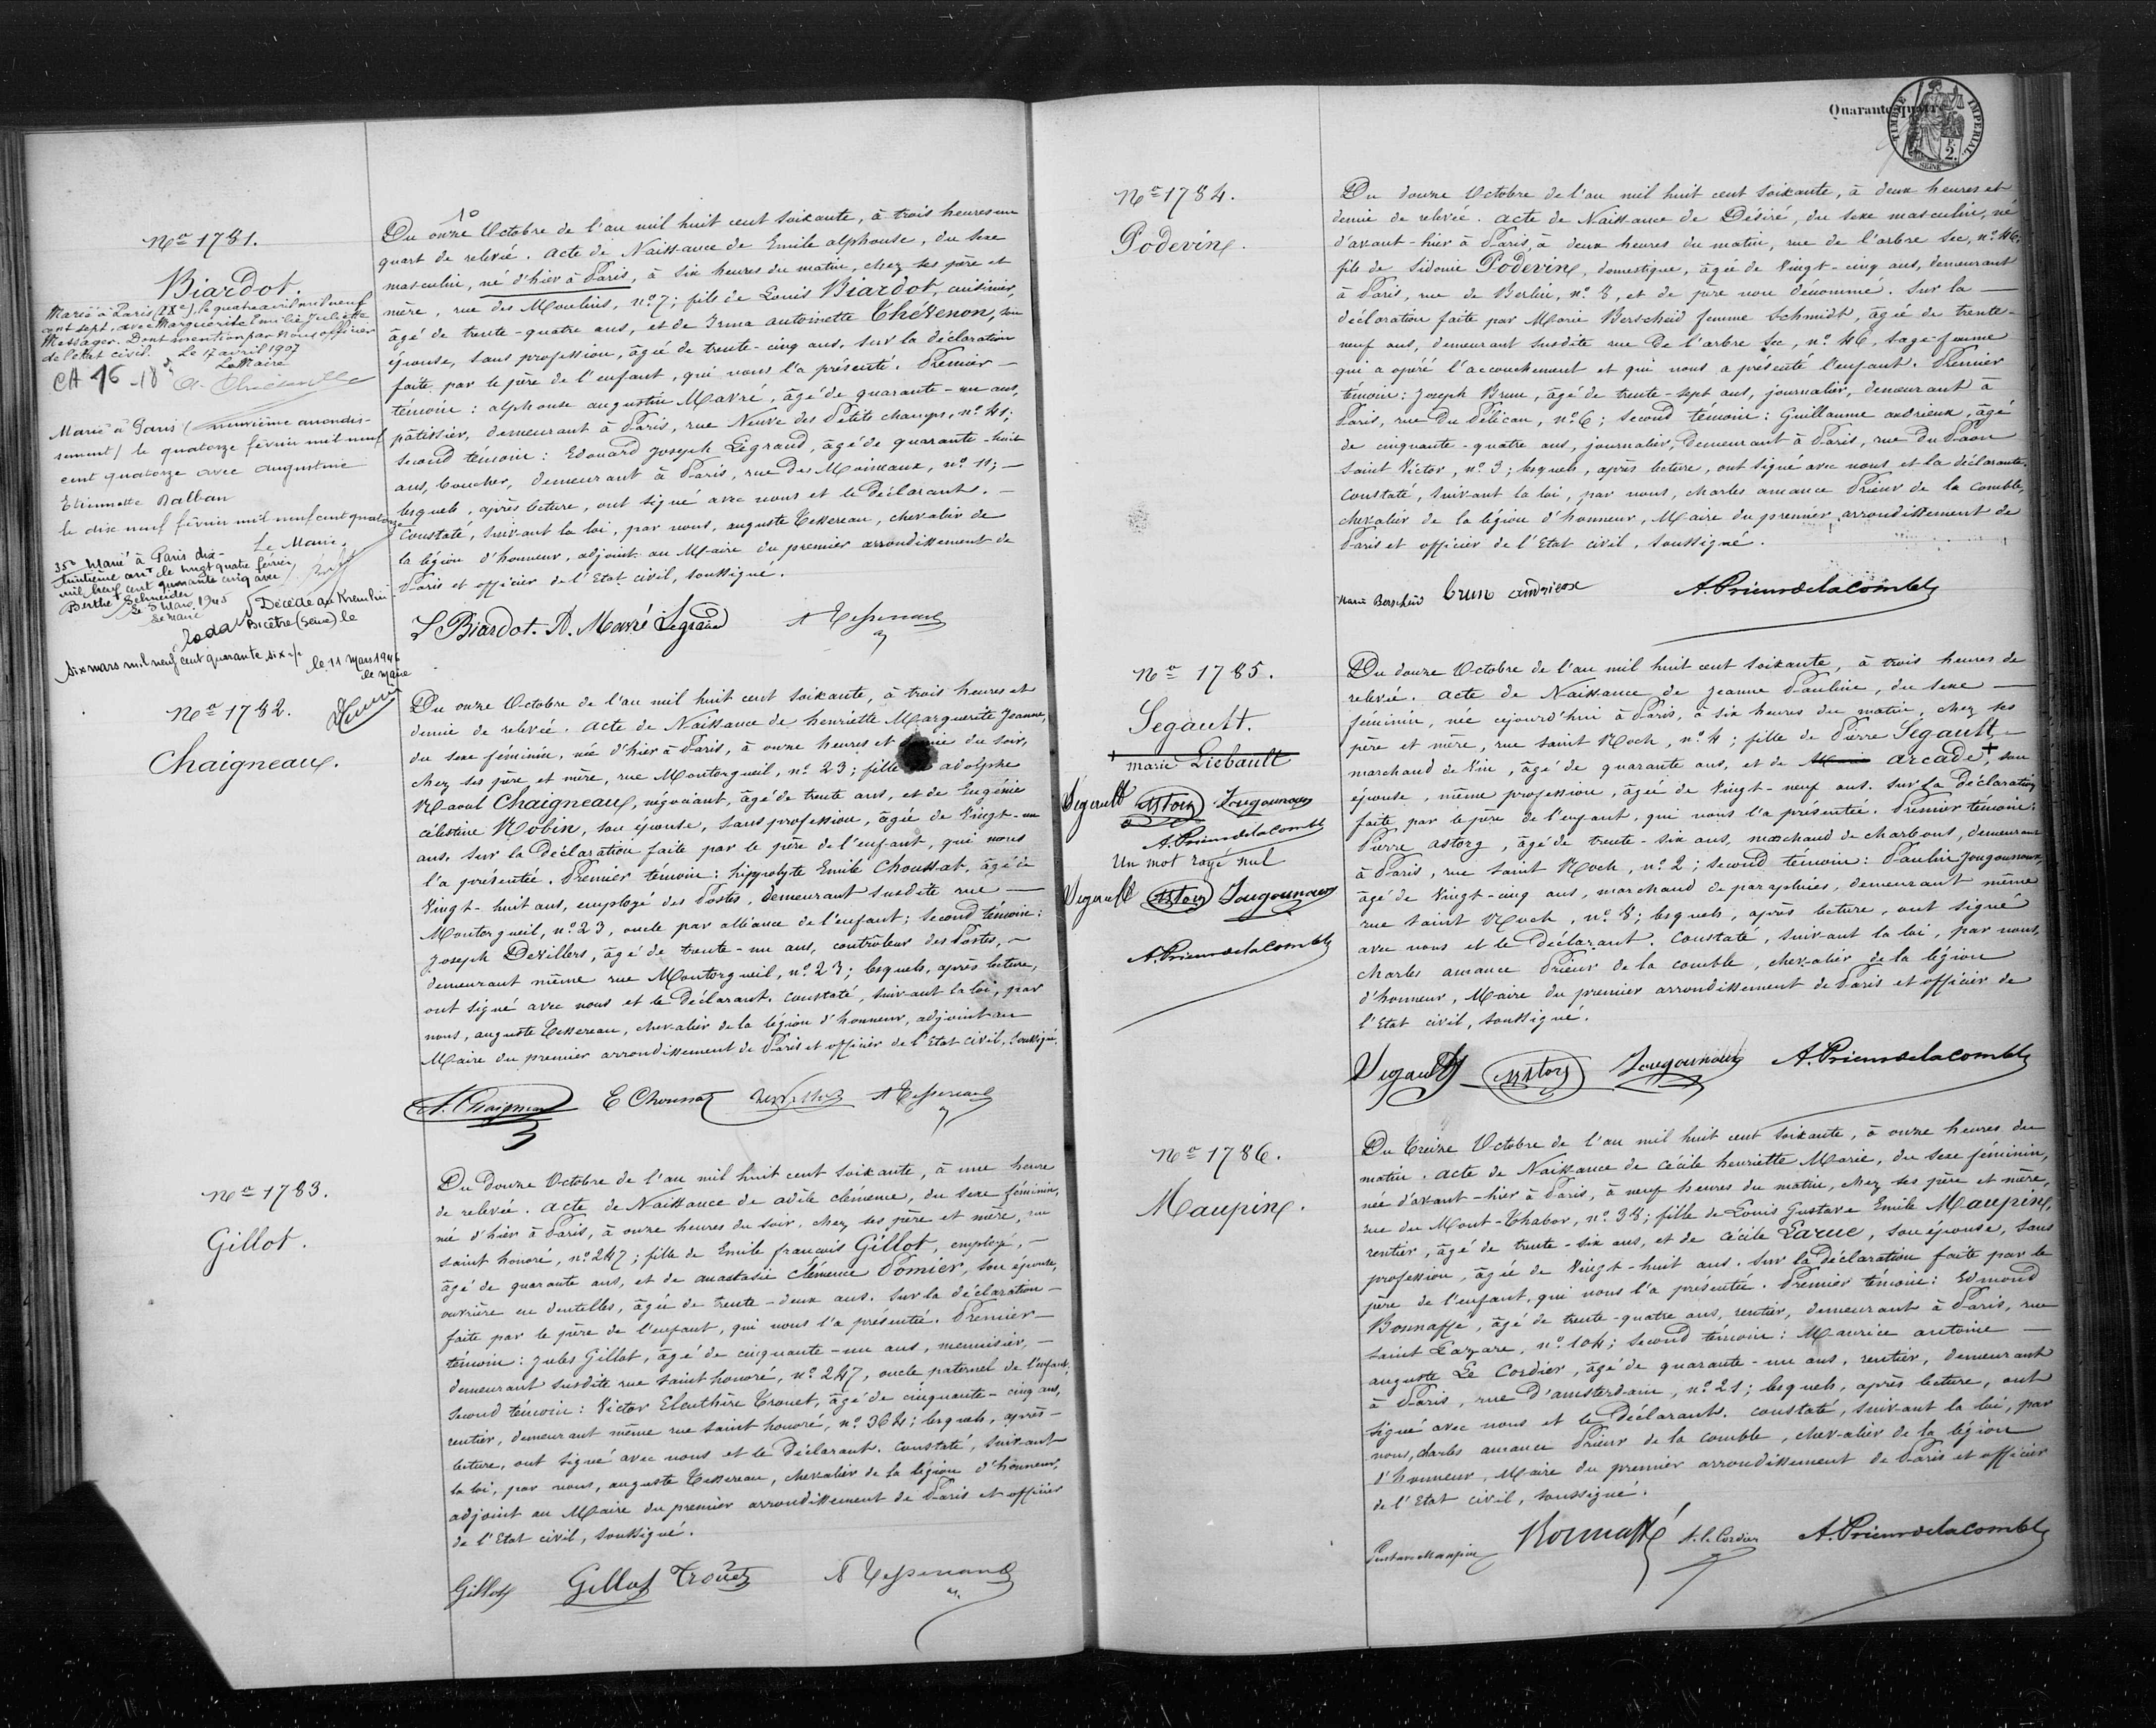 No 1781.
Biardot.
Marié à Paris (IXe), le quatre avril mil neuf
cent sept, avec Marguerite Emilie Juliette
Messager. Dont mention par nous officier
de l'état civil. Le 17 avril 1907
Le Maire
Marié à Paris (neuvième arrondis-
sement) le quatorze février mil neuf
cent quatorze avec Augustine
Etiennette Balban
le dix neuf février mil neuf cent quatorze
Le Maire.
Marié à Paris dix-
huitième arrt le vingt quatre février
mil neuf cent quarante cinq avec
Berthe Schneider
le 3 Mars 1945
Le Maire
Décédé au Kremlin
Bicêtre (Seine) le
six mars mil neuf cent quarante six
le 11 Mars 1946
le Maire
Du onze Octobre de l'an mil huit cent soixante, à trois heures un
quart de relevée. acte de Naissance de Emile alphonse, du sexe
masculin, né d'hier à Paris, à six heures du matin, chez ses père et
mère, rue des Moulins, no 7; fils de Louis Biardot, cuisinier,
âgé de trente-quatre ans, et de Irma antoinette Thévenon, son
épouse, sans profession, âgée de trente-cinq ans, sur la déclaration
faite par le père de l'enfant, qui nous l'a présenté. Premier
témoin : alphonse augustin Mavré, âgé de quarante-un ans,
pâtissier, demeurant à Paris, rue Neuve des Petits champs, no 41;
second témoin : Edouard Joseph Legrand, âgé de quarante-huit
ans, boucher, demeurant à Paris, rue des Moineaux, no 11;
lesquels, après lecture, ont signé avec nous et le déclarant.
Constaté, suivant la loi, par nous, auguste Tessereau, chevalier de
la légion d'honneur, adjoint au Maire du premier arrondissement de
Paris et officier de l'Etat civil, soussigné.
L Biardot. A. Mavré Legrand A Tessereau
No 1782.
Chaigneau.
Du onze Octobre de l'an mil huit cent soixante, à trois heures et
demie de relevée. acte de Naissance de henriette Marguerite Jeanne,
du sexe féminin, née d'hier à Paris, à onze heures et du soir,
chez ses père et mère, rue Montorgueil, no 23; fille adolphe
Raoul Chaigneau, négociant, âgé de trente ans, et de Eugénie
célestine Robin, son épouse, sans profession, âgée de vingt-un
ans. sur la déclaration faite par le père de l'enfant, qui nous
l'a présentée. Premier témoin : hippolyte Emile Choussat, âgé de
vingt-huit ans, employé des Postes, demeurant susdite rue
Montorgueil, no 23, oncle par alliance de l'enfant; second témoin :
Joseph Devillers, âgé de trente-un ans, contrôleur des Postes,
demeurant même rue Montorgueil, no 23; lesquels, après lecture,
ont signé avec nous et le déclarant. constaté, suivant la loi, par
nous, auguste Tessereau, chevalier de la légion d'honneur, adjoint au
Maire du premier arrondissement de Paris et officier de l'Etat civil, soussigné.
A. Chaigneau E Choussat Devillers A Tessereau
No 1783.
Gillot.
Du douze Octobre de l'an mil huit cent soixante, à une heure
de relevée. acte de Naissance de adèle clémence, du sexe féminin,
né d'hier à Paris, à onze heures du soir, chez ses père et mère, rue
saint honoré, no 247; fille de Emile françois Gillot, employé,
âgé de quarante ans, et de anastasie clémence Pomier, son épouse,
ouvrière en dentelles, âgée de trente-deux ans. sur la déclaration
faite par le père de l'enfant, qui nous l'a présentée. Premier
témoin : Jules Gillot, âgé de cinquante-un ans, menuisier,
demeurant susdite rue saint honoré, no 247, oncle paternel de l'enfant;
second témoin : Victor Eleuthère Trouet, âgé de cinquante-cinq ans,
rentier, demeurant même rue saint honoré, no 364; lesquels, après
lecture, ont signé avec nous et le déclarant. constaté, suivant
la loi, par nous, auguste Tessereau, chevalier de la légion d'honneur,
adjoint au Maire du premier arrondissement de Paris et officier
de l'Etat civil, soussigné.
Gillot Gillot Trouet A Tessereau
Quarante quatre
TIMBRE IMPERIAL
F. 2.
SEINE
No 1784.
Podevin.
Du douze Octobre de l'an mil huit cent soixante, à deux heures et
demie de relevée. acte de Naissance de Désiré, du sexe masculin, né
d'avant-hier à Paris, à deux heures du matin, rue de l'arbre sec, no 46;
fils de Sidonie Podevin, domestique, âgée de vingt-cinq ans, demeurant
à Paris, rue de Berlin, no 8, et de père non dénommé. Sur la
déclaration faite par Marie Berscheid femme Schmidt, âgée de trente-
neuf ans, demeurant susdite rue de l'arbre sec, no 46, sage-femme
qui a opéré l'accouchement et qui nous a présenté l'enfant. Premier
témoin : Joseph Brun, âgé de trente-sept ans, journalier, demeurant à
Paris, rue du Pélican, no 6; second témoin : Guillaume andrieux, âgé
de cinquante-quatre ans, journalier, demeurant à Paris, rue du Paon
saint Victor, no 3; lesquels, après lecture, ont signé avec nous et la déclarante.
Constaté, suivant la loi, par nous, charles amance Prieur de la comble,
chevalier de la légion d'honneur, Maire du premier arrondissement de
Paris et officier de l'Etat civil, soussigné.
Marie Berscheid brun andrieux A. Prieur de la Comble
No 1785.
Segault.
+ marie Liébault
Segault Astorg Jougounoux
A. Prieur de la Comble
Un mot rayé nul
Segault Astorg Jougounoux
A. Prieur de la Comble
Du douze Octobre de l'an mil huit cent soixante, à trois heures de
relevée. acte de Naissance de Jeanne Pauline, du sexe
féminin, née cejourd'hui à Paris, à six heures du matin, chez ses
père et mère, rue saint Roch, no 4; fille de Pierre Segault,
marchand de vin, âgé de quarante ans, et de Marie arcade +, son
épouse, même profession, âgée de vingt-neuf ans. sur la déclaration
faite par le père de l'enfant, qui nous l'a présentée. Premier témoin :
Pierre astorg, âgé de trente-six ans, marchand de charbons, demeurant
à Paris, rue saint Roch, no 2; second témoin : Paulin Jougounoux,
âgé de vingt-cinq ans, marchand de parapluies, demeurant même
rue saint Roch, no 8; lesquels, après lecture, ont signé
avec nous et le déclarant. constaté, suivant la loi, par nous,
charles amance Prieur de la comble, chevalier de la légion
d'honneur, Maire du premier arrondissement de Paris et officier de
l'Etat civil, soussigné.
Segault Astorg Jougounoux A. Prieur de la Comble
No 1786.
Maupin.
Du treize Octobre de l'an mil huit cent soixante, à onze heures du
matin. acte de Naissance de cécile henriette Marie, du sexe féminin,
née d'avant-hier à Paris, à neuf heures du matin, chez ses père et mère,
rue du Mont-Thabor, no 38; fille de Louis Gustave Emile Maupin,
rentier, âgé de trente-six ans, et de cécile Larue, son épouse, sans
profession, âgée de vingt-huit ans. sur la déclaration faite par le
père de l'enfant, qui nous l'a présentée. Premier témoin : Edmond
Bonnaffe, âgé de trente-quatre ans, rentier, demeurant à Paris, rue
saint Lazare, no 104; second témoin : Maurice antoine
auguste Le Cordier, âgé de quarante-un ans, rentier, demeurant
à Paris, rue d'amsterdam, no 21; lesquels, après lecture, ont
signé avec nous et le déclarant. constaté, suivant la loi, par
nous, charles amance Prieur de la comble, chevalier de la légion
d'honneur, Maire du premier arrondissement de Paris et officier
de l'Etat civil, soussigné.
Gustave Maupin Bonnaffé A. le Cordier A. Prieur de la Comble